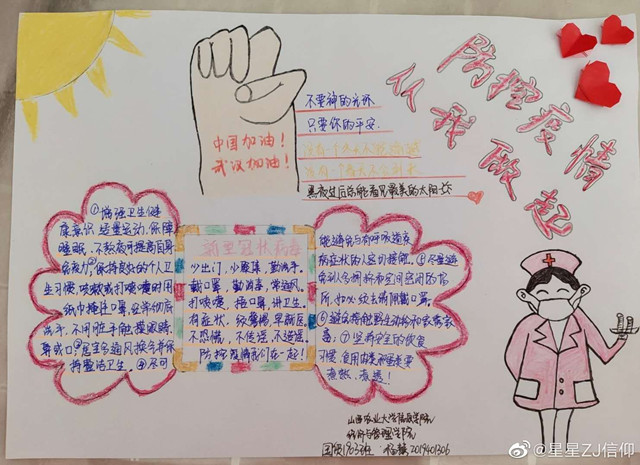 防控疫情
从我做起
中国加油！
武汉加油！
不要神的光环
只要你的平安
黑夜过后你能看见最美的太阳
①增强卫生健
康意识,适量运动,保障
睡眠,不熬夜可提高自身
免疫力②保持良好的个人卫
生习惯,咳嗽或打喷嚏时用
纸巾掩住口鼻,
洗手,不用脏手触摸眼睛,
鼻或口③居室多通风换气并保
持整洁卫生。④尽可
新型冠状病毒
少出门,少聚集,勤洗手。
戴口罩,勤消毒,常通风。
打喷嚏,捂口鼻,讲卫生。
有症状,
不恐慌,不传谣,不造谣。
防控疫情我们在一起!
能避免与有呼吸道疾
病症状的人密切接触。⑤尽量避
免到人多拥挤和空间密闭的场
所,如必须去请佩戴口罩。
⑥避免接触野生动物和家禽家
畜。⑦坚持安全的饮食
习惯,食用肉类和蛋类要
煮熟、煮透!
山西农业大学
2019401306
@星星ZJ信仰